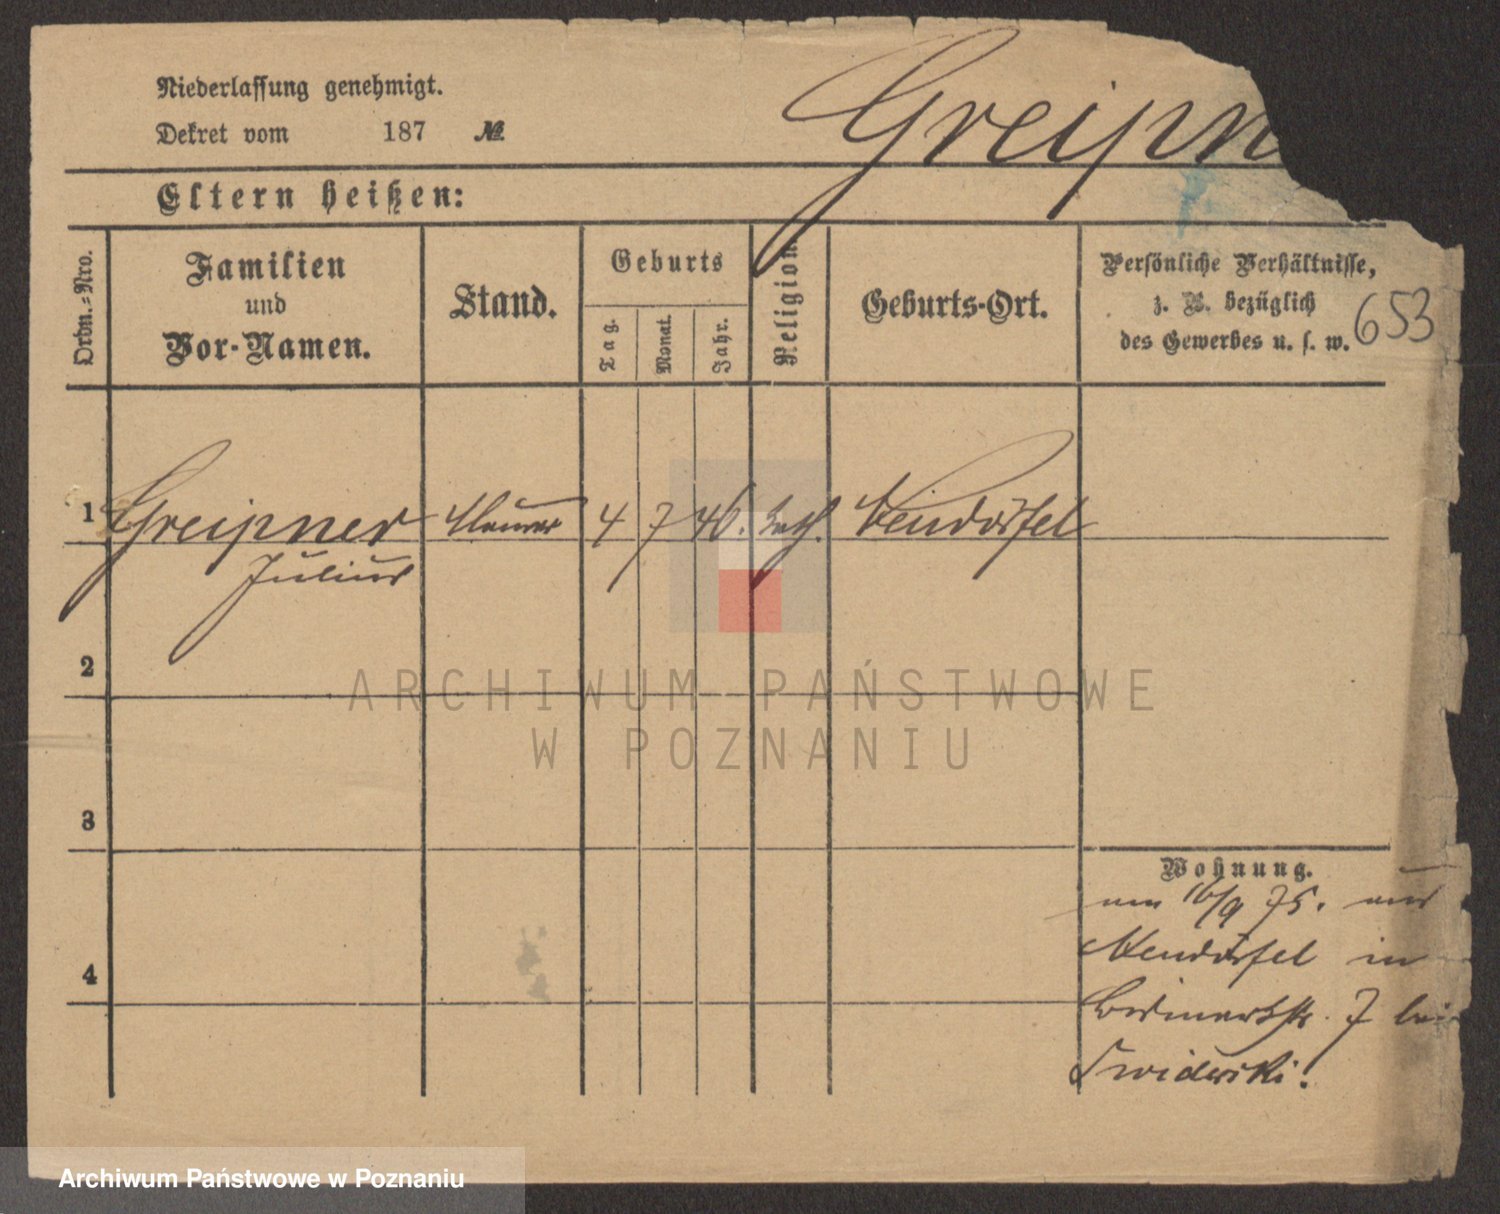 Niederlassung genehmigt.
Dekret vom 187 №
Greipn
Eltern heißen:
Ordn.-Nro.
Familien
und
Vor-Namen.
Stand.
Geburts
Tag.
Monat.
Jahr.
Religion
Geburts-Ort.
Persönliche Verhältnisse,
z. B. bezüglich
des Gewerbes u. s. w.
653
1 Greipner Maurer 4 7 46. kath. Neudörfel
Julius
2
3
4
Wohnung.
am 16/9 75. aus
Neudörfel in
7 bei
Swiderski.
ARCHIWUM PAŃSTWOWE
W POZNANIU
Archiwum Państwowe w Poznaniu